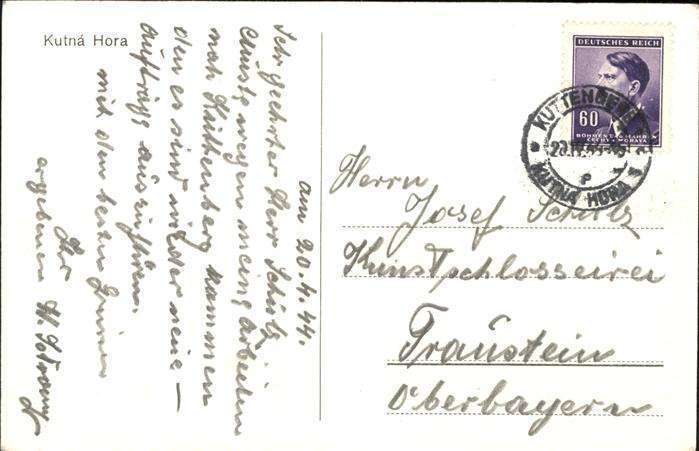 Kutná Hora
am 20.4.44.
Sehr geehrter Herr Schülz
nach Kuttenberg kommen
den es sind wieder neue –
Aufträge auszuführen.
mit den besten Grüssen
Ihr
ergebener
DEUTSCHES REICH
60
BÖHMEN UND MÄHREN
ČECHY A MORAVA
KUTTENBERG
KUTNÁ HORA 1
Herrn
Josef Schülz
Kunstschlosseirei
Traustein
Oberbayern